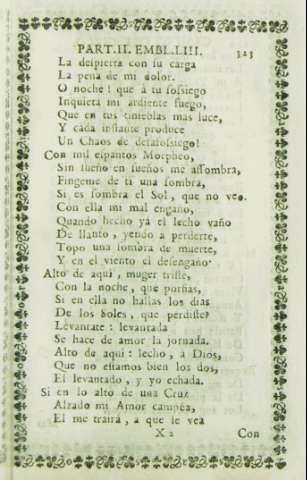 PART. II. EMBL. LIII. 323
La despierta con su carga
La pena de mi dolor.
O noche! que à tu sossiego
Inquieta mi ardiente fuego,
Que en tus tinieblas mas luce,
Y cada instante produce
Un Chaos de desassossiego!
Con mil espantos Morpheo,
Sin sueño en sueños me assombra,
Fingeme de ti una sombra,
Si es sombra el Sol, que no veo.
Con ella mi mal engaño,
Quando hecho yá el lecho vaño
De llanto, yendo a perderte,
Topo una sombra de muerte,
Y en el viento el desengaño.
Alto de aqui, muger triste,
Con la noche, que porfias,
Si en ella no hallas los dias
De los Soles, que perdiste?
Levantate: levantada
Se hace de amor la jornada.
Alto de aqui: lecho, à Dios,
Que no estamos bien los dos,
El levantado, y yo echada.
Si en lo alto de una Cruz
Alzado mi Amor campéa,
El me trairá, a que le vea
X 2 Con